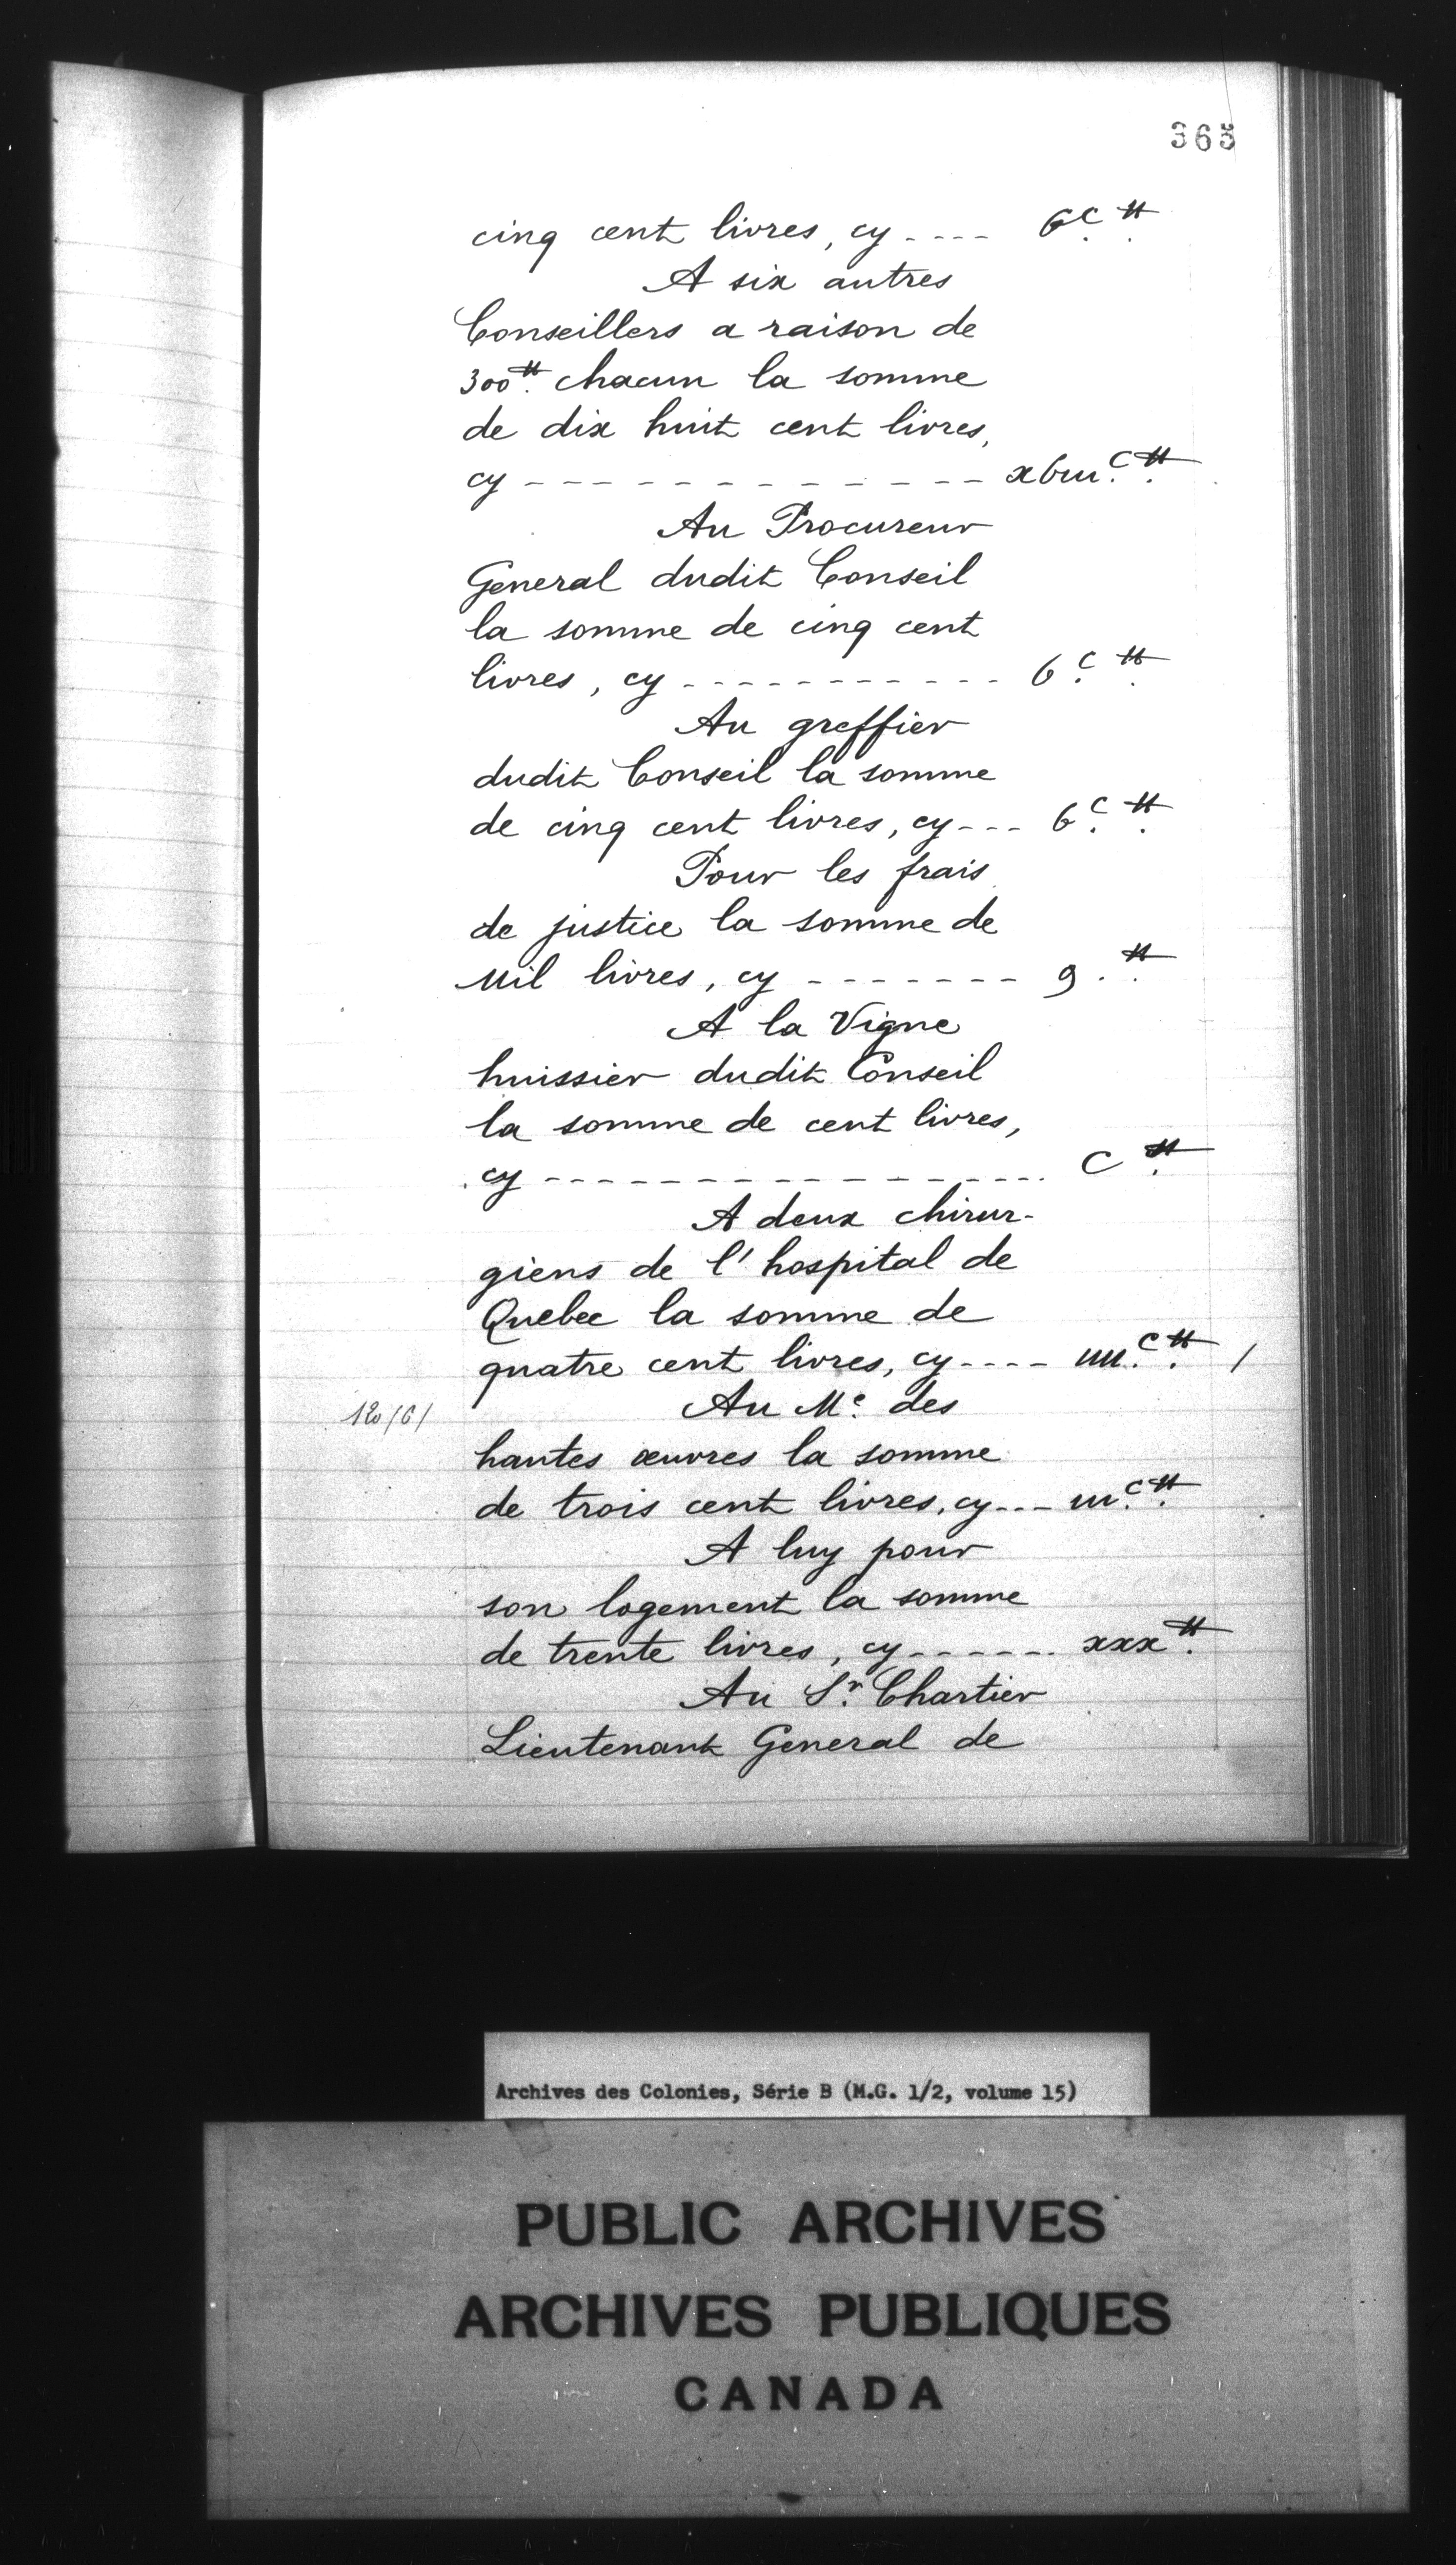 363
cinq cent livres, cy .... 6c ₶
A six autres
Conseillers a raison de
300₶ chacun la somme
de dix huit cent livres,
cy ------------- x6iiic ₶
Au Procureur
General dudit Conseil
la somme de cinq cent
livres, cy ----------- 6c ₶
Au greffier
dudit Conseil la somme
de cinq cent livres, cy --- 6c ₶
Pour les frais
de justice la somme de
Mil livres, cy ------- 9 ₶
A la Vigne
huissier dudit Conseil
la somme de cent livres,
cy ----------------- C ₶
A deux chirur-
giens de l'hospital de
Quebec la somme de
quatre cent livres, cy ---- iiiic ₶ /
Au Me. des
hautes œuvres la somme
de trois cent livres, cy --- iiic ₶
A luy pour
son logement la somme
de trente livres, cy ------ xxx ₶
Au Sr. Chartier
Lieutenant General de
Archives des Colonies, Série B (M.G. 1/2, volume 15)
PUBLIC ARCHIVES
ARCHIVES PUBLIQUES
CANADA